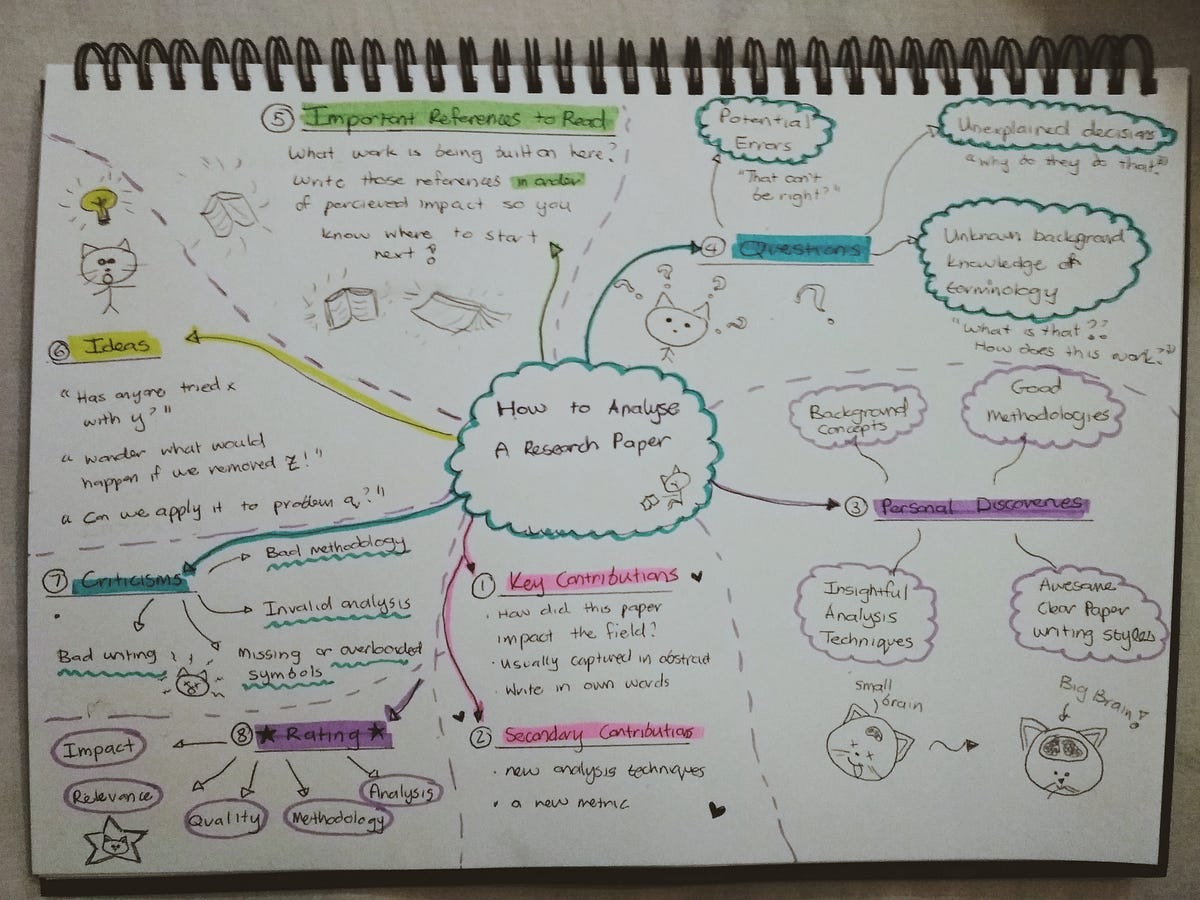 How to Analyse
A Research Paper
① Key Contributions
· How did this paper
impact the field?
· usually captured in abstract
· Write in own words
② Secondary Contributions
· new analysis techniques
· a new metric
③ Personal Discoveries
Background
Concepts
Good
Methodologies
Insightful
Analysis
Techniques
Awesome
Clear Paper
writing styles
small
brain
Big Brain!
④ Questions
Potential
Errors
"That can't
be right?"
Unexplained decisions
"Why do they do that?"
Unknown background
knowledge of
terminology
"What is that??
How does this work?"
? ? ? ?
?
⑤ Important References to Read
What work is being built on here?
Write those references in order
of percieved impact so you
know where to start
next!
⑥ Ideas
"Has anyone tried x
with y?"
"wonder what would
happen if we removed z!"
"Can we apply it to problem q?"
⑦ Criticisms
Bad methodology
Invalid analysis
Missing or overloaded
symbols
Bad writing
⑧ ★ Rating ★
Impact
Relevance
Quality
Methodology
Analysis